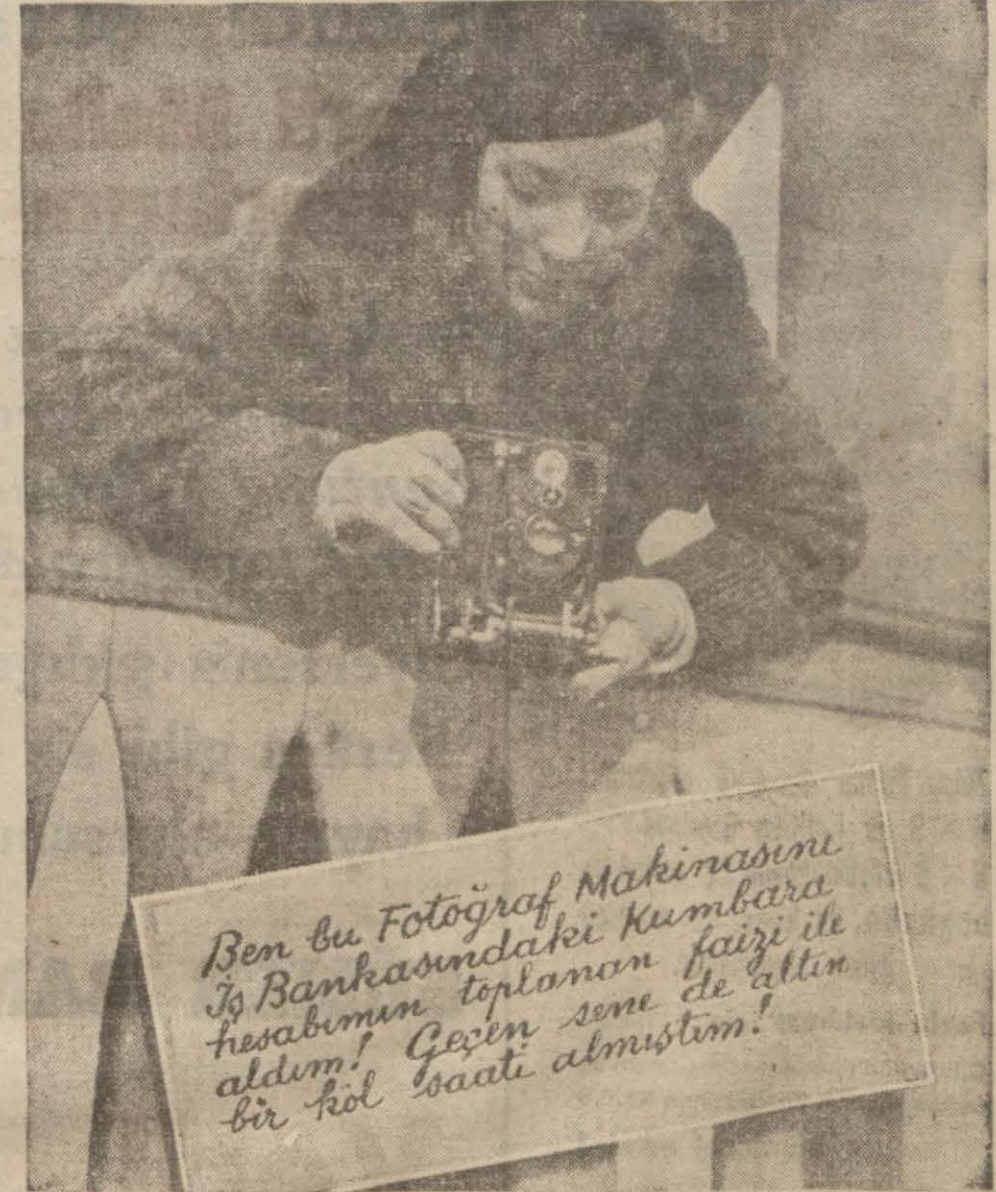 Ben bu Fotoğraf Makinasını
İş Bankasındaki Kumbara
hesabımın toplanan faizi ile
aldım! Geçen sene de altın
bir kol saati almıştım!